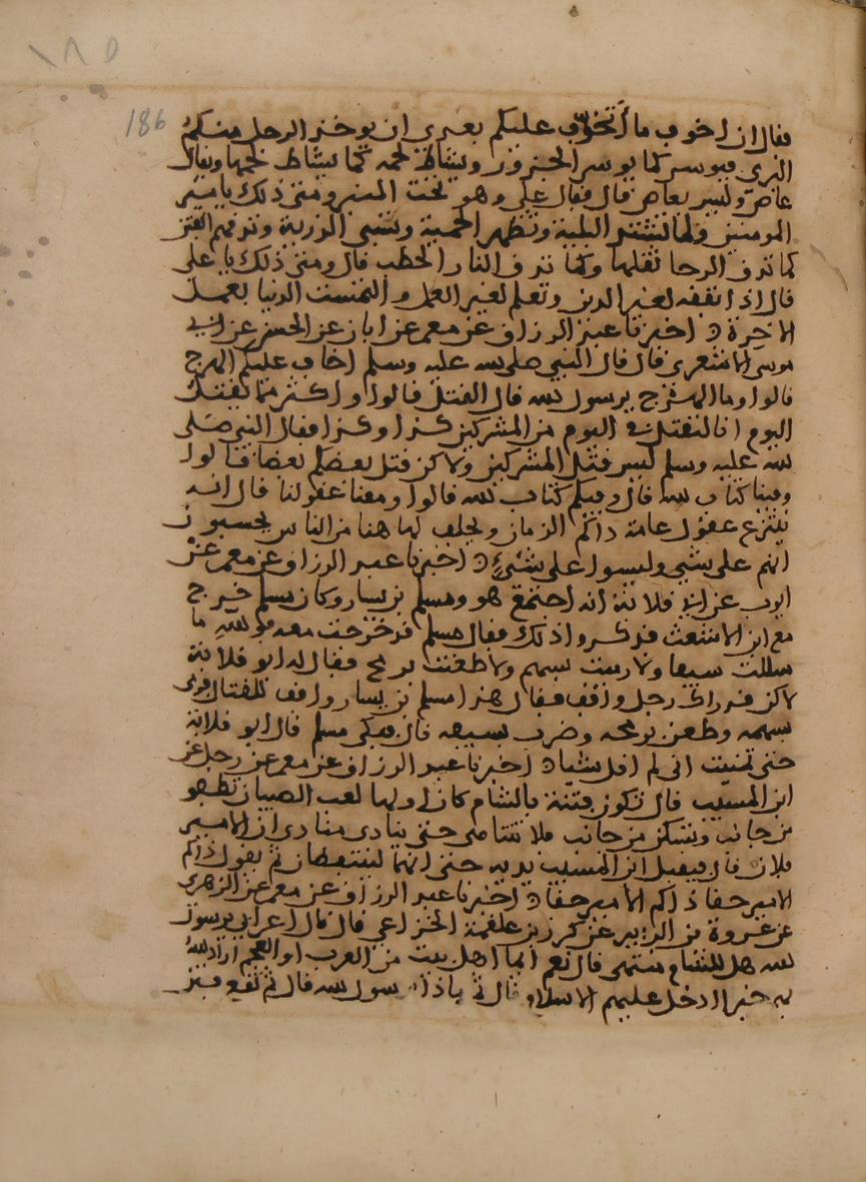 ١٨٥
186
فقال ان اخوف ما أتخوف عليكم بعدي ان يوخذ الرجل منكم
البري فيوسر كما يوسر الجزور ويشاط لحمه كما يشاط لحمها ويقال
عاص وليس بعاص قال فقال علي وهو تحت المنبر ومتى ذلك يا امير
المومنين ولما تشتد البلية وتظهر الحمية وتسبى الذرية وتدقهم الفتن
كما تدق الرحا ثفلها وكما تدق النار الحطب قال ومتى ذلك يا علي
قال اذا تفقه لغير الدين وتعلم لغير العمل والتمست الدنيا بعمل
الاخرة اخبرنا عبد الرزاق عن معمر عن ابان عن الحسن عن ابي
موسى الاشعري قال قال النبي صلى الله عليه وسلم اخاف عليكم الهرج
قالوا وما الهرج يرسول الله قال القتل قالوا واكثر مما يقتل
اليوم انا لنقتل في اليوم من المشركين كذا وكذا فقال النبي صلى
الله عليه وسلم ليس قتل المشركين ولاكن قتل بعضكم بعضا قالوا
وفينا كتاب الله قال وفيكم كتاب الله قالوا ومعنا عقولنا قال انه
ينتزع عقول عامة ذاكم الزمان ويخلف لها هنا من الناس يحسبون
انهم على شي وليسوا على شيء اخبرنا عبد الرزاق عن معمر عن
ايوب عن ابي قلابة انه اجتمع هو ومسلم بن يسار وكان مسلم خرج
مع ابن الاشعث فذكروا ذلك فقال مسلم قد خرجت معه فوالله ما
سللت سيفا ولا رميت بسهم ولا طعنت برمح فقال له ابو قلابة
لاكن قد راك رجل واقف فقال هذا مسلم بن يسار واقف للقتال فرمى
بسهمه وطعن برمحه وضرب بسيفه قال فبكى مسلم قال ابو قلابة
حتى تمنيت اني لم اقل شيا اخبرنا عبد الرزاق عن معمر عن رجل عن
ابن المسيب قال تكون فتنة بالشام كان اولها لعب الصبيان تطفو
من جانب وتسكن من جانب فلا تتناهى حتى ينادي مناد ان الامير
فلان قال فيفتل ابن المسيب يديه حتى انهما لتنتفضان ثم يقول ذاكم
الامير حقا ذاكم الامير حقا اخبرنا عبد الرزاق عن معمر عن الزهري
عن عروة بن الزبير عن كرز بن علقمة الخزاعي قال قال اعرابي يرسول
الله هل للاسلام منتهى قال نعم ايما اهل بيت من العرب او العجم اراد الله
بهم خيرا ادخل عليهم الاسلام قال ثم ماذا يرسول الله قال ثم تقع فتن